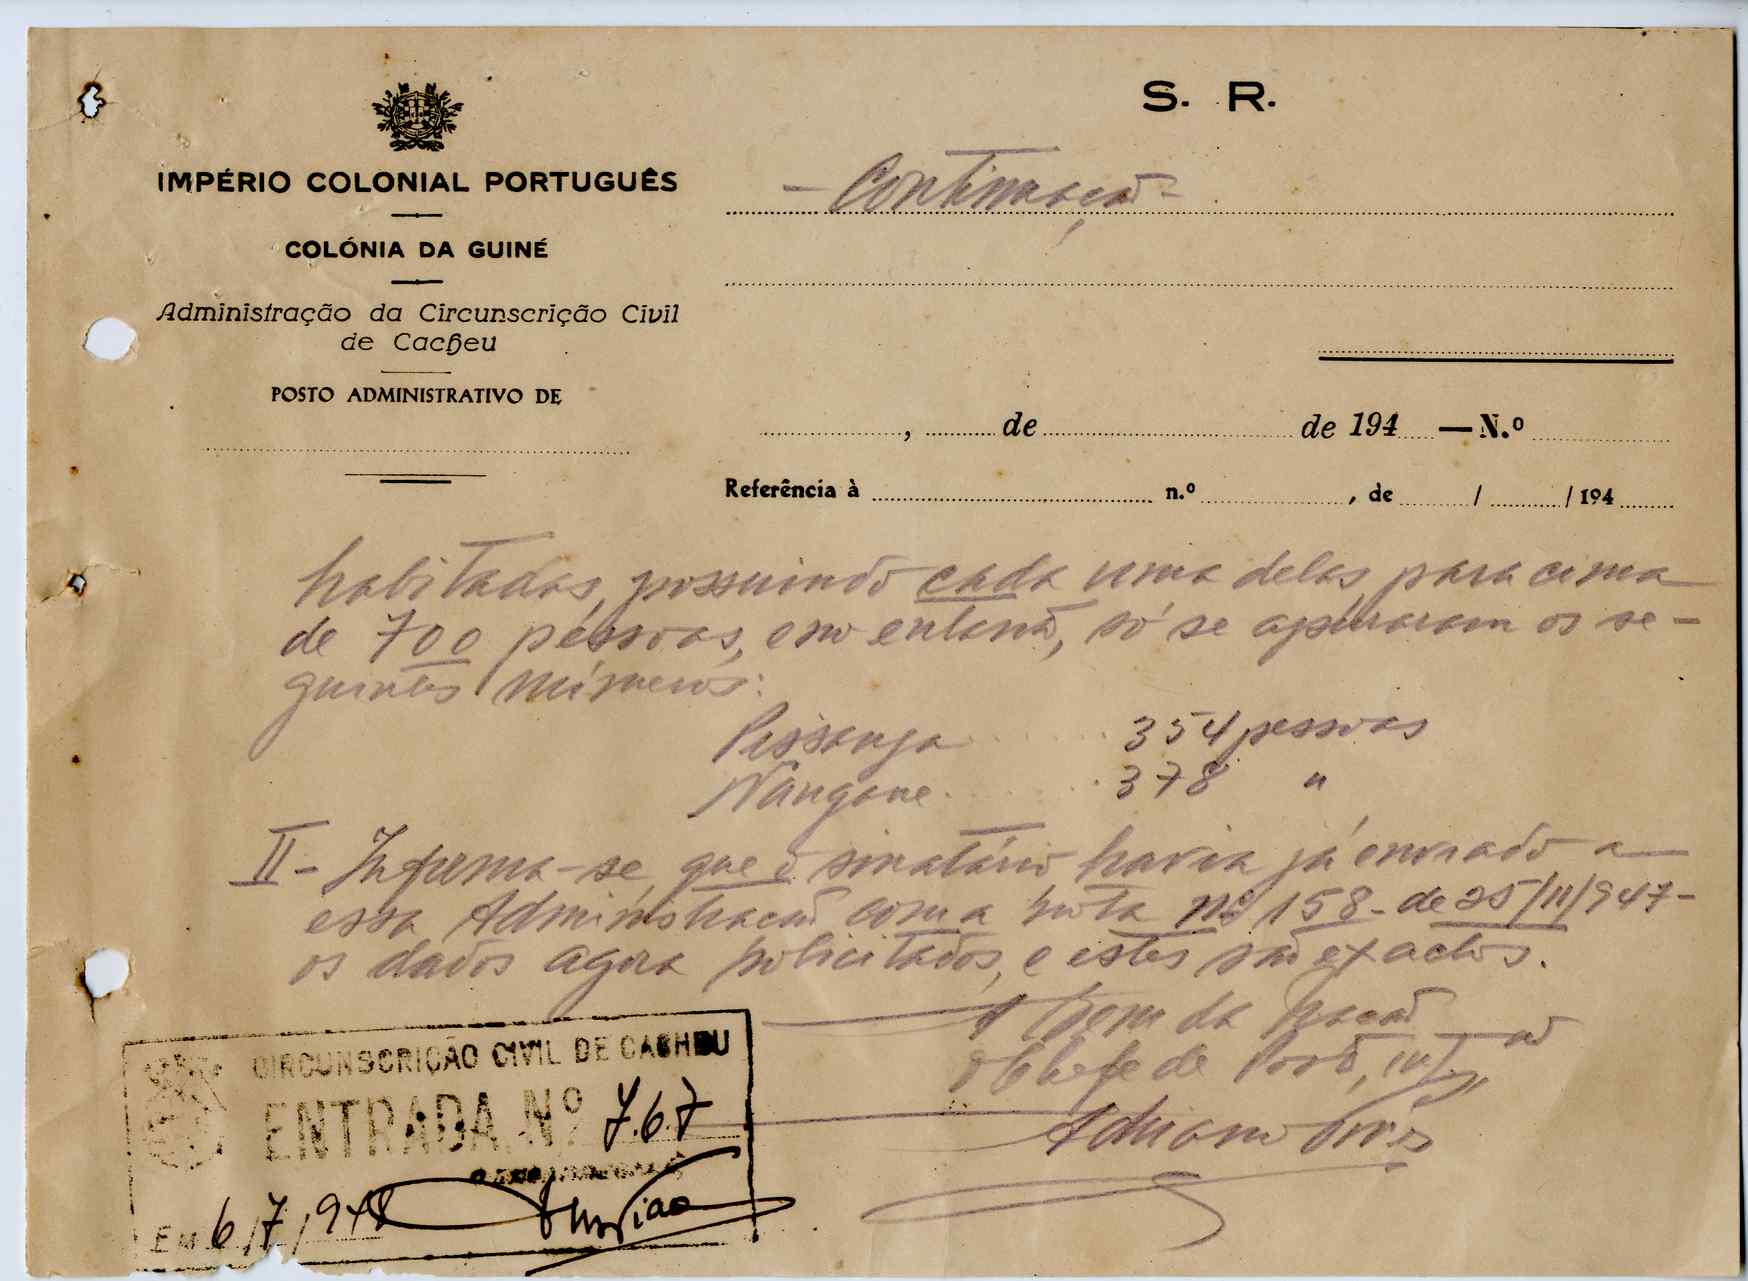 S. R.
IMPÉRIO COLONIAL PORTUGUÊS
COLÓNIA DA GUINÉ
Administração da Circunscrição Civil
de Cacheu
POSTO ADMINISTRATIVO DE
- Continuação -
, de de 194 — N.º
Referência à n.º , de / / 194
habitadas, possuindo cada uma delas, para cima
de 700 pessoas, e no entanto, só se apuraram os se-
guintes números:
Pissanga 354 pessoas
Nângone 378 "
II - Informa-se, que o sinatário havia já enviado a
essa Administração com a nota nº 158 - de 25/11/947 -
os dados agora solicitados, e estes são exactos.
A Bem da Nação
O Chefe de Posto, intº
Adriano Pires
CIRCUNSCRIÇÃO CIVIL DE CACHEU
ENTRADA N.º 767
EM 6/7/948